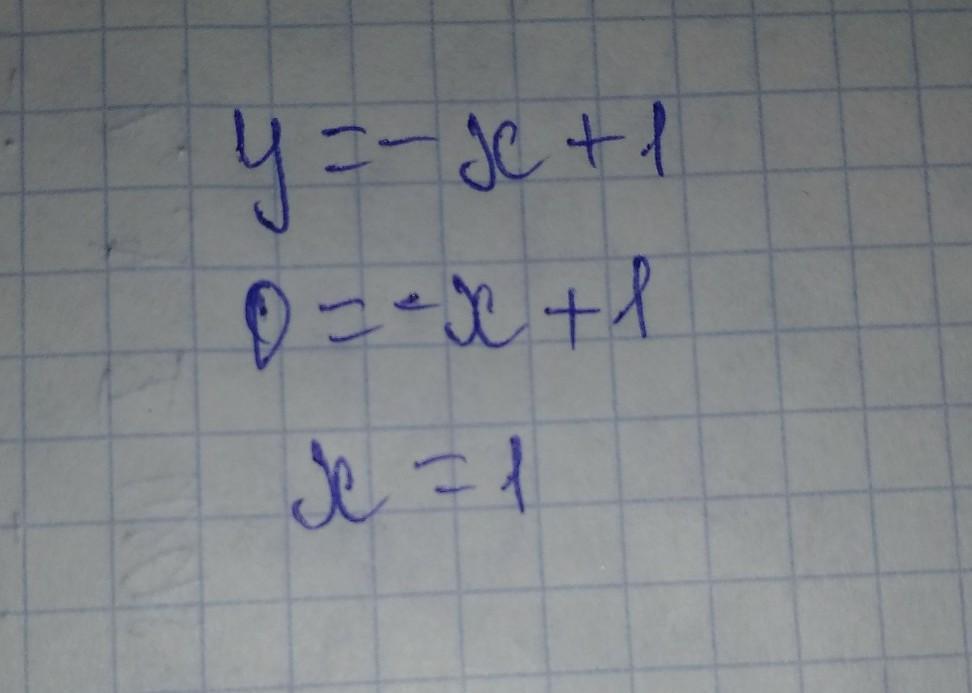 y = - x + 1
0 = - x + 1
x = 1